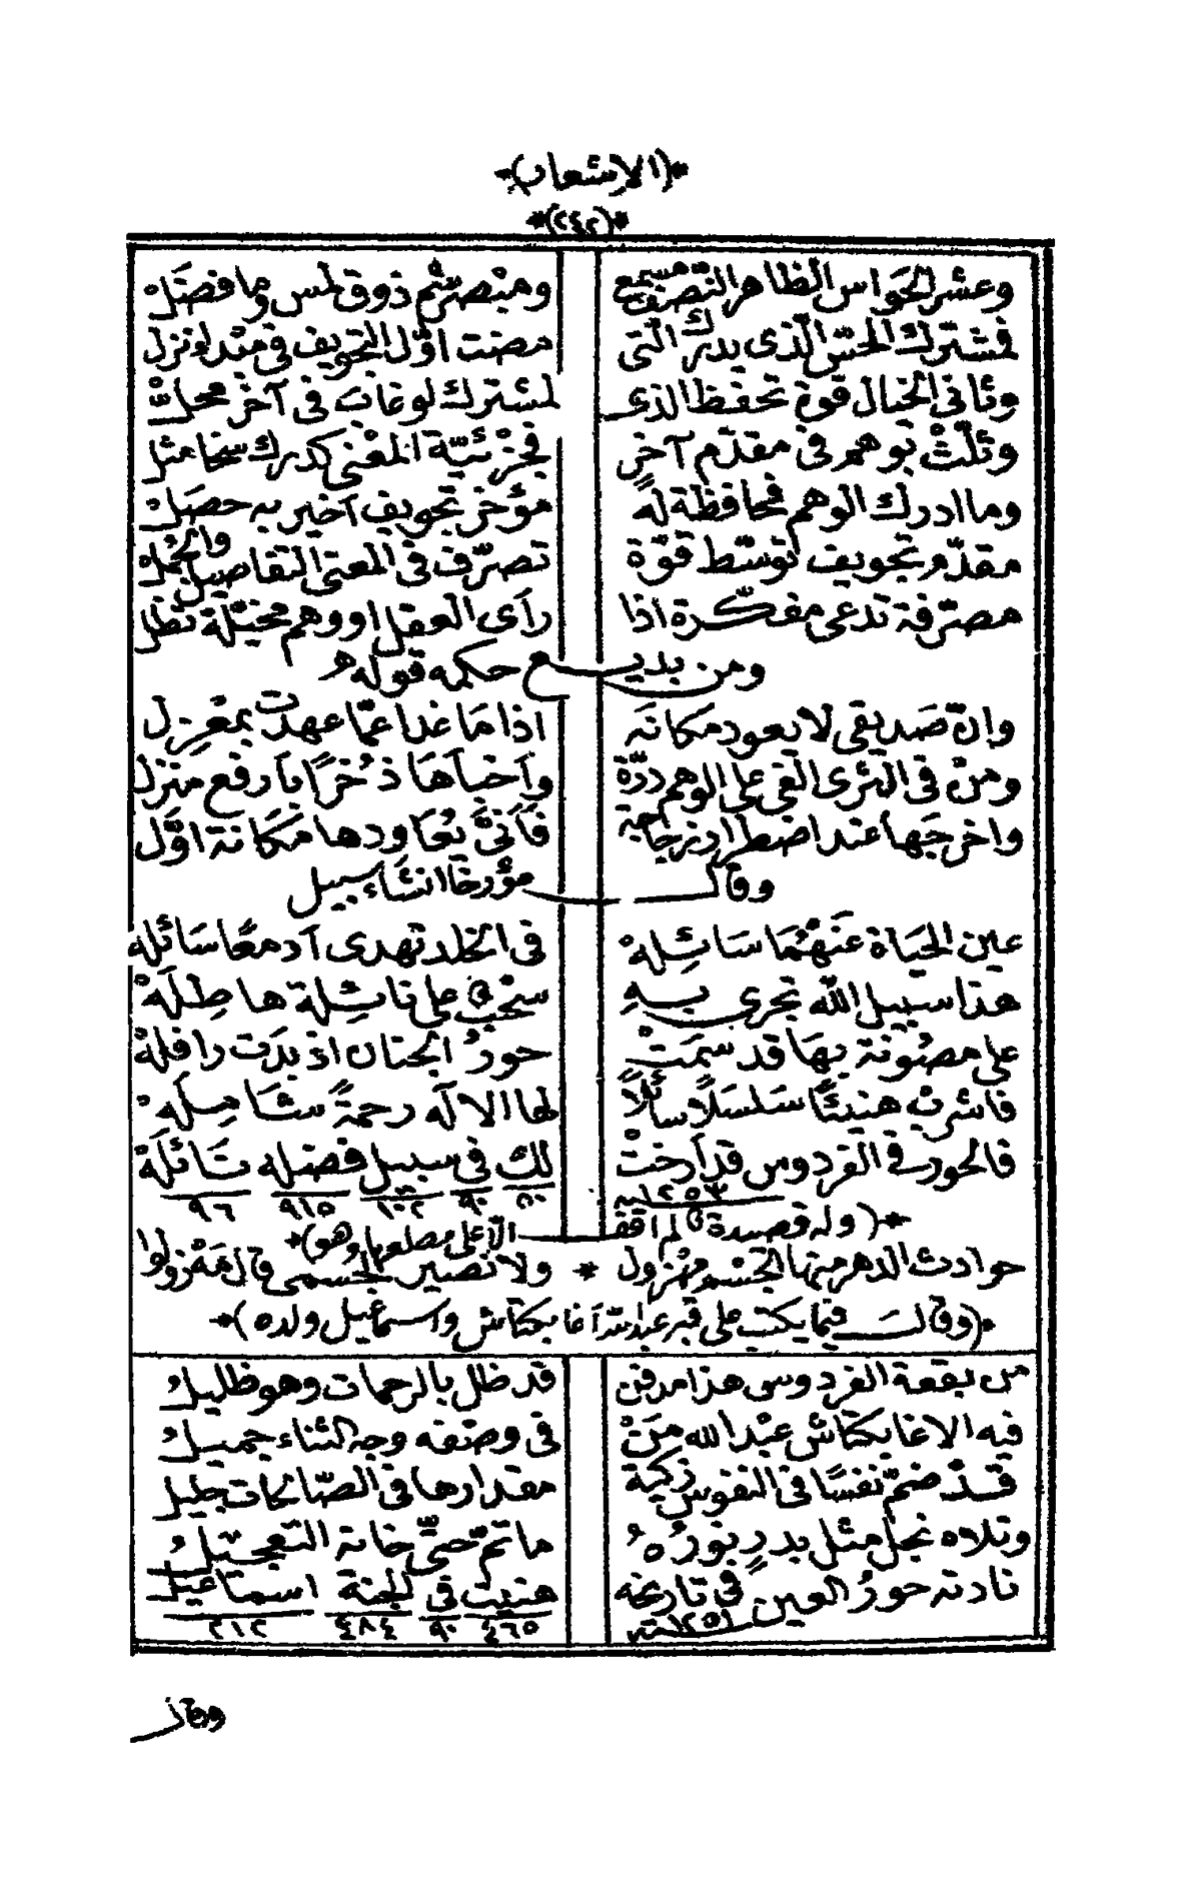 *(الاشعار)*
*(٢٤٢)*
وعشر الحواس الظاهر التصق مسمع ومبصر شم ذوق لمس وما فصل
فمشترك الحس الذى يدرك التى مضت اول التجويف فى منه لو نزل
وثانى الخيال قوة تحفظ الذى لمشترك لو غاب فى آخر محل
وثلث بوهم فى مقدم آخر فجزئية المعنى كدرك سخا مثل
وما ادرك الوهم فحافظة له مؤخر تجويف آخير به حصل
مقدم تجويف توسط قوة تصرف فى المعنى التفاصيل والجمل
مصرفة تدعى مفكرة اذا رآى العقل او وهم مخيلة تظل
ومن بديع حكمه قوله
وان صديقى لا يعود مكانه اذا ما غدا عما عهدت بمعزل
ومن فى الثرى القى على الوهم درة وآخبآها ذخرا بآرفع منزل
واخرجها عند اضطرار زجاجة فآنى يعاودها مكانة اول
وقال مؤرخا انشاء سبيل
عين الحياة عنهما سائله فى الخلد تهدى آدمعا سائله
هذا سبيل الله تجرى به سحب على ناشلة هاطله
على مصونة بها قد سمت حور الجنان اذ بدت رافلة
فاشرب هنيئا سلسلا سائلا لها الاله رحمة شاسله
فالحور فى الفردوس قد آرخت لك فى سبيل فضله نائلة
سنة ١٢٥٣ ٥٠ ٩٠ ١٠٢ ٩١٥ ٩٦
*(وله قصيدة لم اقف الا على مطلعها وهو)*
حوادث الدهر منها الجسم مهزول * ولا نصير لجسمى قال مه زولوا
*(وقال فيما يكتب على قبر عبد الله آغا بكتاش واسماعيل ولده)*
من بقعة الفردوس هذا مدفن قد ظل بالرحمات وهو ظليل
فيه الاغا بكتاش عبد الله من فى وصفه وجه الثناء جميل
قد ضم نفسا فى النفوس زكية مقدارها فى الصالحات جليل
وتلاه نجل مثل بدر نوره ما تم حتى خانه التعجيل
نادته حور العين فى تاريخه هنيت فى الجنة اسماعيل
سنة ١٢٥١ ٤٦٥ ٩٠ ٤٨٤ ٢١٢
وقال